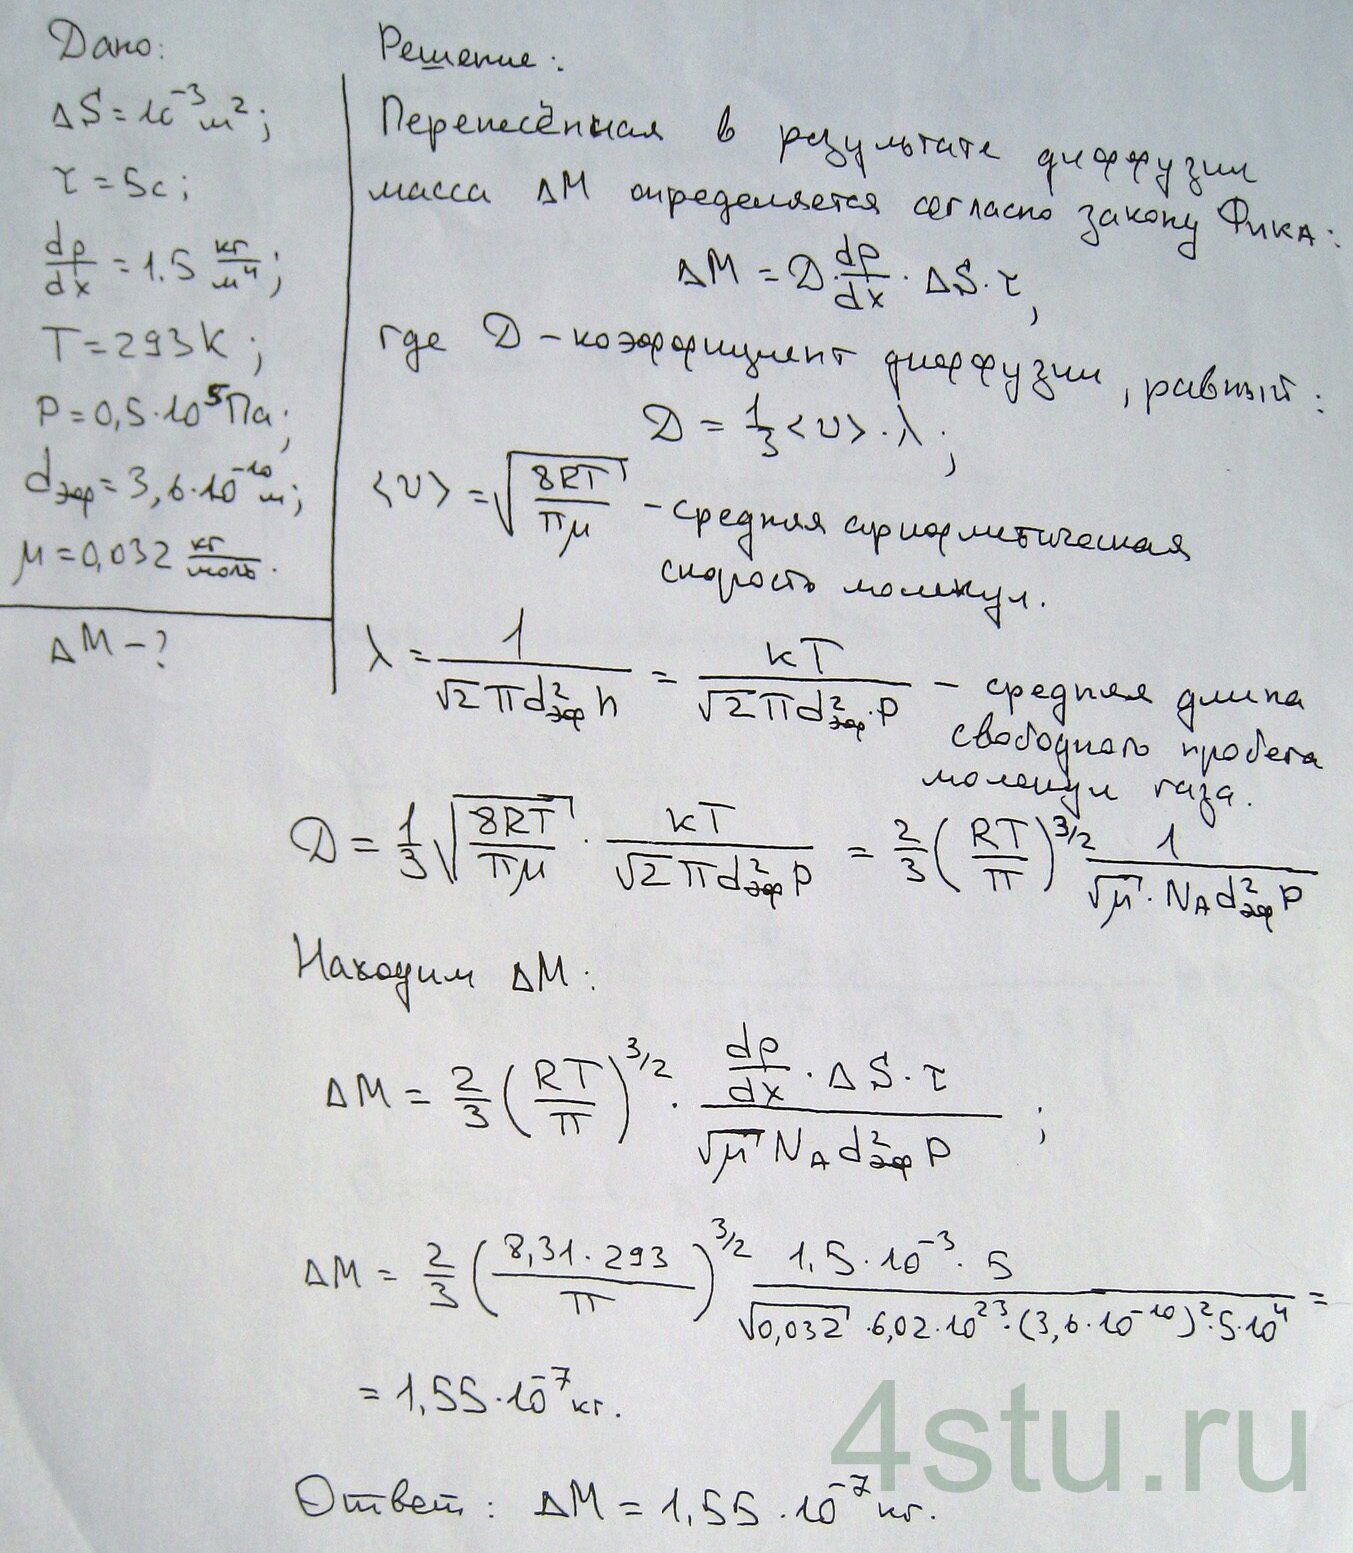 Дано:
ΔS = 10⁻³ м²;
τ = 5с;
dρ/dx = 1.5 кг/м⁴;
T = 293К;
P = 0,5·10⁵ Па;
dэф = 3,6·10⁻¹⁰ м;
μ = 0,032 кг/моль.
ΔM - ?
Решение:
Перенесённая в результате диффузии
масса ΔM определяется согласно закону Фика:
ΔM = D·dρ/dx · ΔS·τ,
где D - коэффициент диффузии, равный:
D = 1/3 <υ>·λ;
<υ> = √(8RT/πμ) - средняя арифметическая
скорость молекул.
λ = 1/(√2 π d²эф n) = kT/(√2 π d²эф·P) - средняя длина
свободного пробега
молекул газа.
D = 1/3 √(8RT/πμ) · kT/(√2 π d²эф P) = 2/3 (RT/π)^3/2 1/(√μ · N_A d²эф P)
Находим ΔM:
ΔM = 2/3 (RT/π)^3/2 · (dρ/dx · ΔS·τ)/(√μ N_A d²эф P);
ΔM = 2/3 (8,31·293/π)^3/2 (1,5·10⁻³·5)/(√0,032 ·6,02·10²³·(3,6·10⁻¹⁰)²·5·10⁴) =
= 1,55·10⁻⁷ кг.
Ответ: ΔM = 1,55·10⁻⁷ кг.
4stu.ru